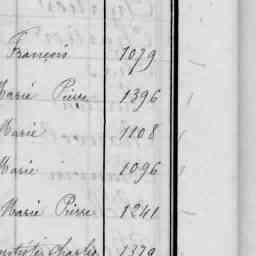 François 1079
Marie Pierre 1396
Marie 1108
Marie 1096
Marie Pierre 1241
Charles 1379